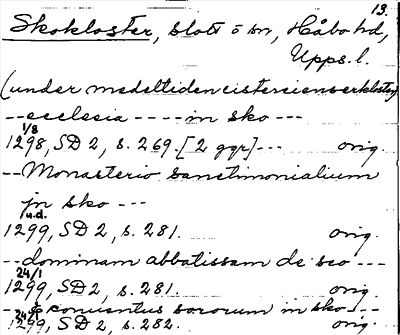 13.
Skokloster, slott o sn, Håbo hd,
Upps. l.
(under medeltiden cistercienserkloster)
--ecclesia ---- in sko ---
1/8
1298, SD 2, s. 269. [2 ggr] --- orig.
-- Monasterio sanctimonialium
in sko ---
u.d.
1299, SD 2, s. 281. orig.
-- dominam abbatissam de sco ---
24/1
1299, SD 2, s. 281. orig.
-- & conuentus sororum in sko --
24/1
1299, SD 2, s. 282. orig.